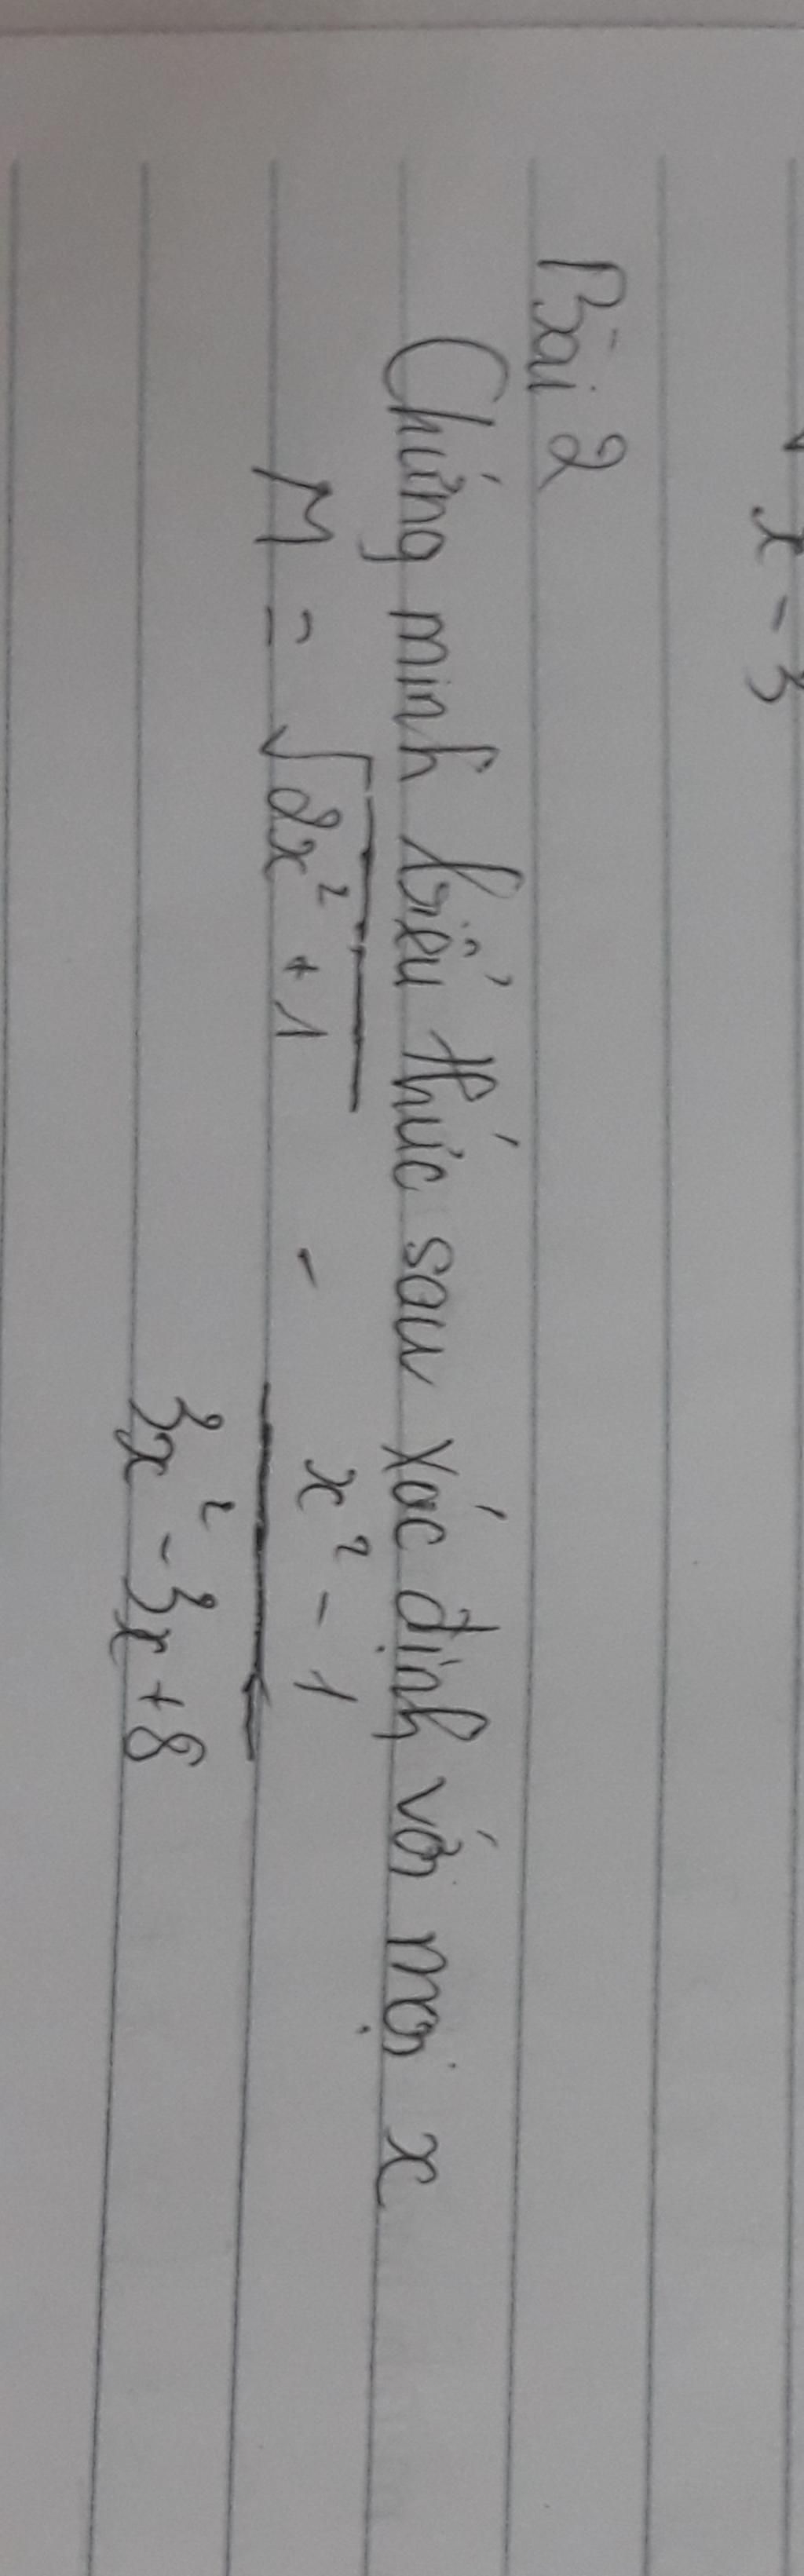 x - 3
Bài 2
Chứng minh biểu thức sau xác định với mọi x
M = √2x² + 1 - x² - 1
3x² - 3x + 8